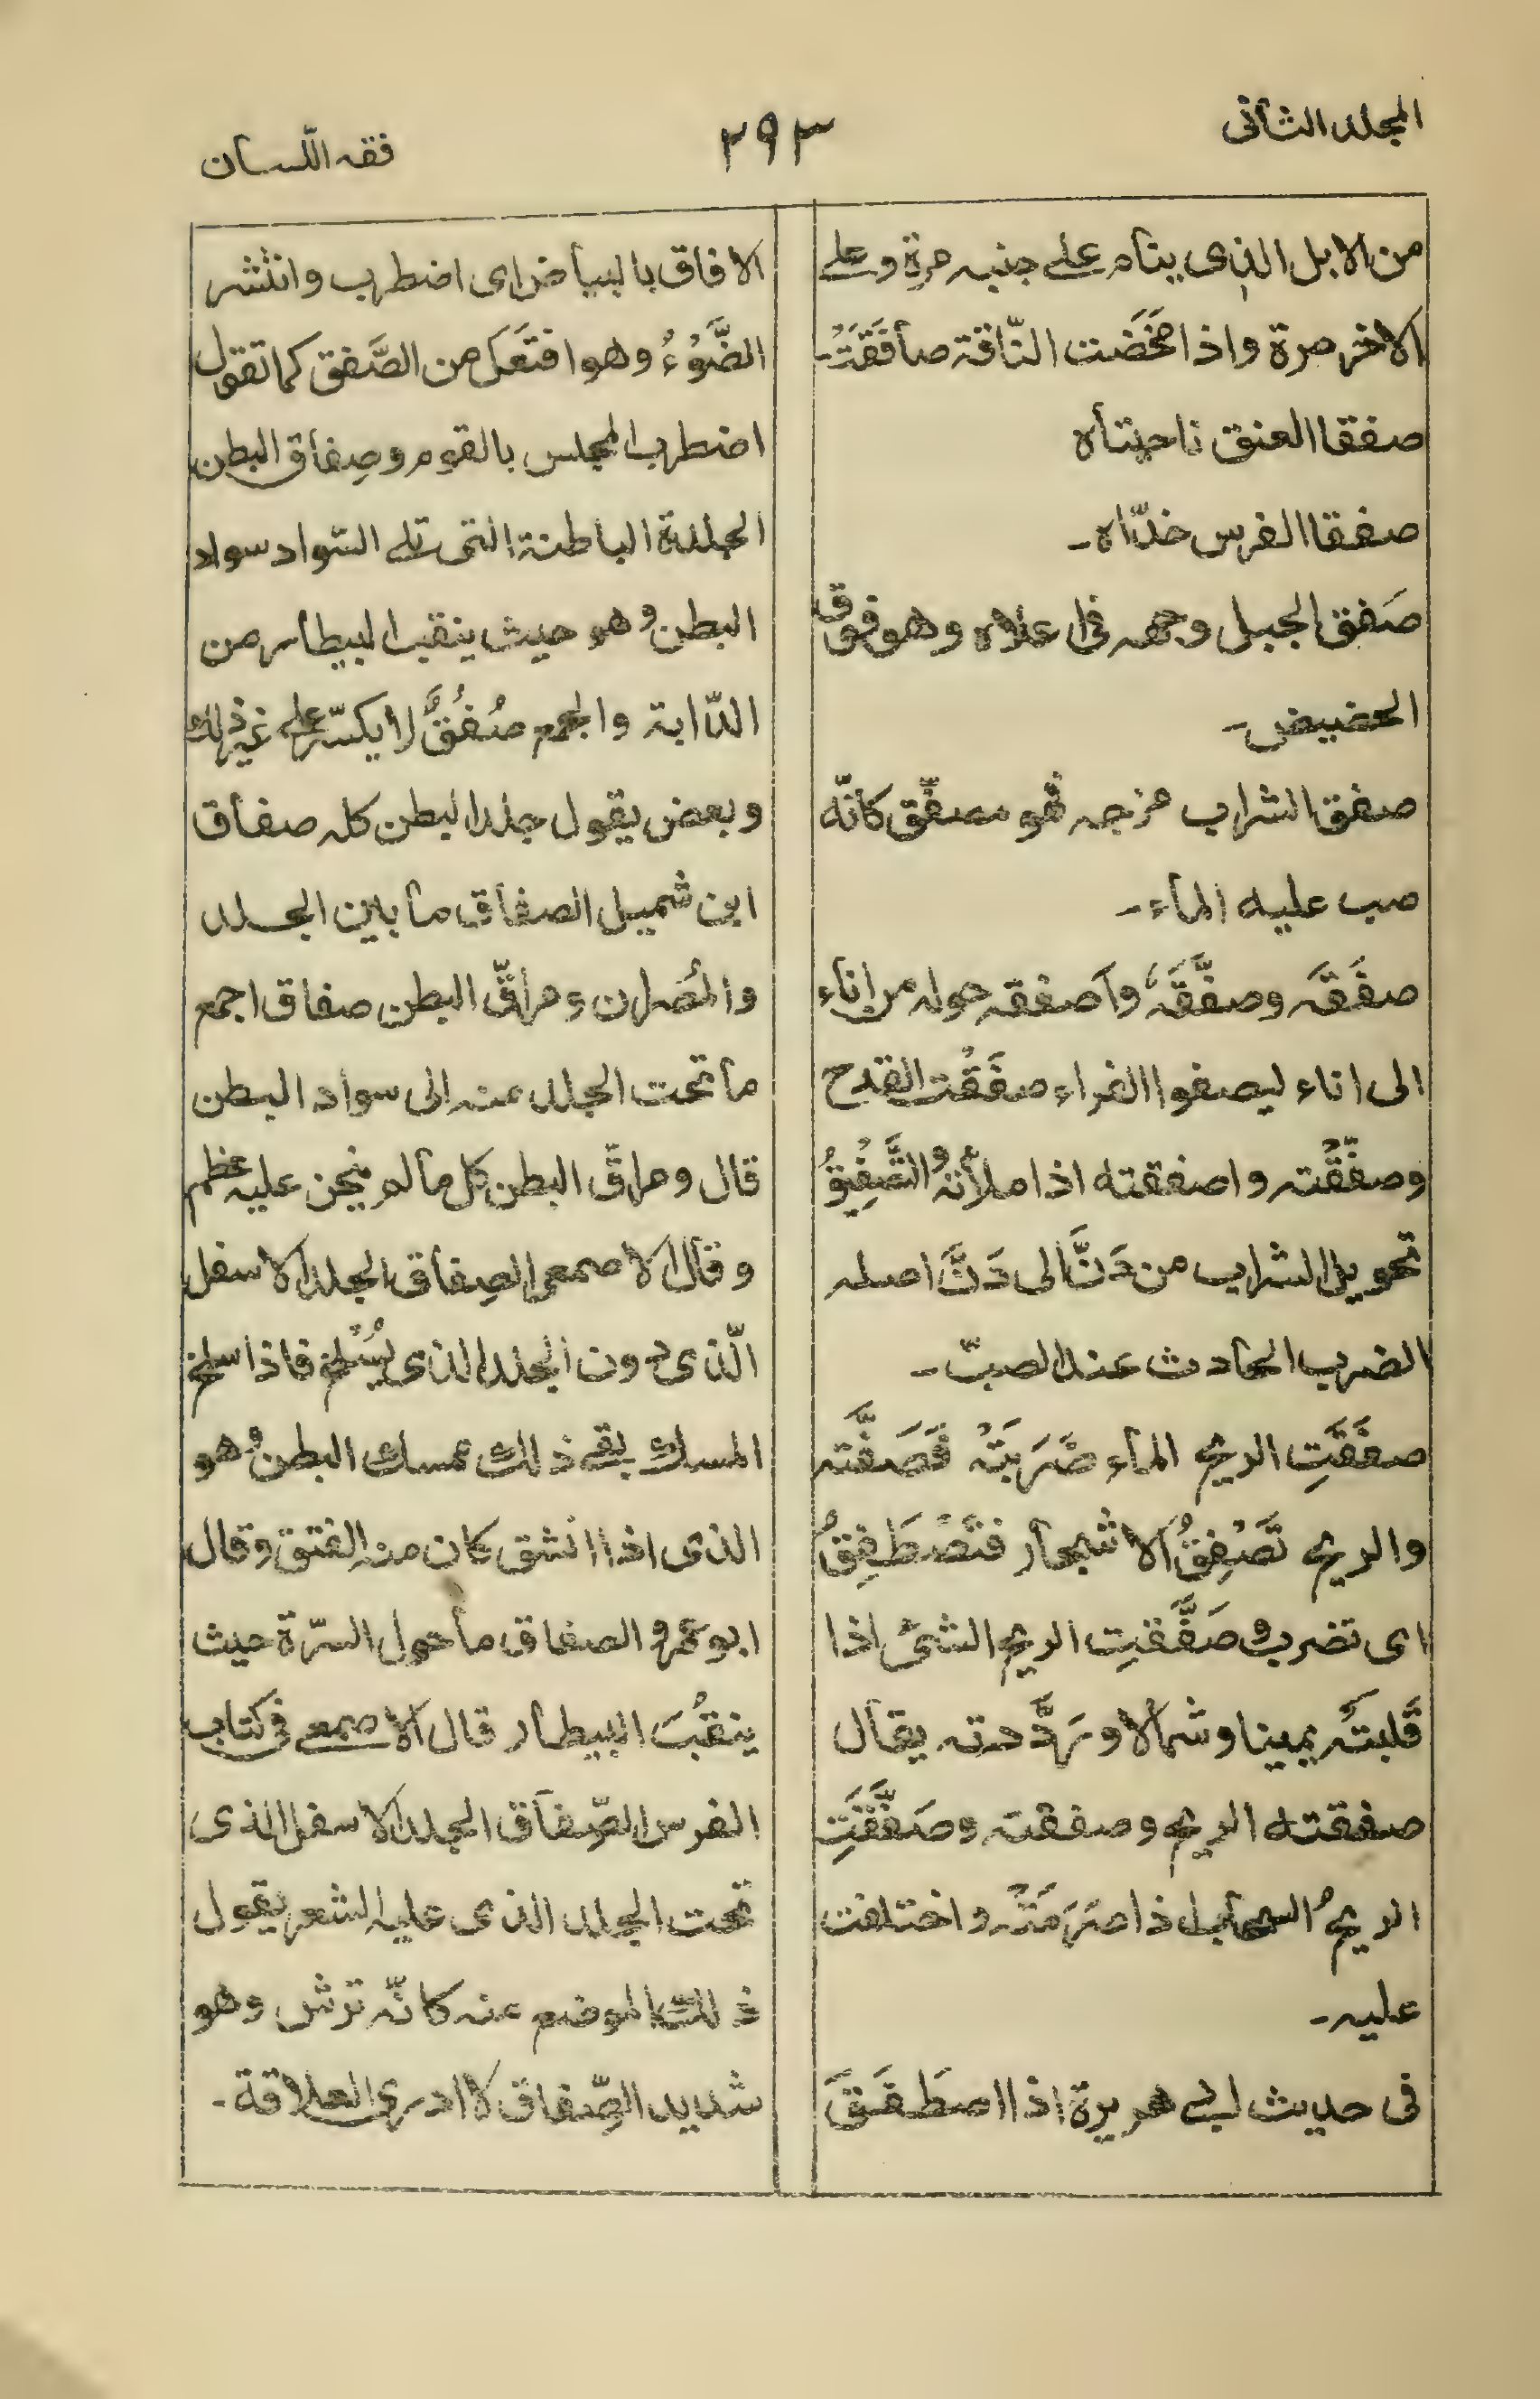 المجلد الثاني
٢٩٣
فقه اللّسان
من الابل الذى ينام على جنبه مرة وعلى
الاخر مرة واذا مَخَضَت النّاقة صافَقَتْ۔
صفقا العنق ناحيتاه
صفقا الفرس خدّاه۔
صَفق الجبل وجهه فى اعلاه وهو فوق
الحضيض۔
صفق الشراب مزجه فهو مصفّق كانّه
صب عليه الماء۔
صفَقَه وصفَّقَهٗ وأصفقه حوله من اناء
الى اناء ليصفوا الفراء صفَقْت القدح
وصفّقْته واصفقته اذا ملأته والتَّصْفِيْقُ
تحويل الشراب من دَنٍّ الى دَنٍّ اصله
الضرب الحادث عند الصبّ۔
صفَقَتِ الريح الماء ضَرَبَتْه فَصَفَّتْه
والريح تَصْفِقُ الاشجار فتَصْطَفِقُ
اى تضرب وصَفَّقتِ الريح الشئ اذا
قَلبتْه يمينا وشمالا وردَّدته يقال
صفقته الريح وصفقته وصَفَّقَتِ
الريحُ السحاب اذا صَرَمَتْه واختلفت
عليه۔
فى حديث ابى هريرة اذا اصطَفَقَ
الافاق بالبياض اى اضطرب وانتشر
الضَّوْءُ وهو افتَعَل من الصَّفق كما تقول
اضطرب المجلس بالقوم وصِفاق البطن
الجلدة الباطنة التى تلى السّواد سواد
البطن وهو حيث ينقب البيطار من
الدّابة والجمع صُفُقٌ لا يكسّر على غير ذلك
وبعض يقول جلد البطن كله صفاق
ابن شميل الصفاق ما بين الجلد
والمُصران ومراقّ البطن صفاق اجمع
ما تحت الجلد منه الى سواد البطن
قال ومراقّ البطن كل مالم ينحن عليه عظم
وقال الاصمعى الصِفاق الجلد الاسفل
الّذى دون الجلد الذى يُسْلخ فاذا سلخ
المسك بقى ذلك ممسك البطن وهو
الذى اذا انشق كان منه الفتق وقال
ابو عمرو الصفاق ما حول السرّة حيث
ينقُبُ البيطار قال الاصمعى فى كتاب
الفرس الصِّفاق الجلد الاسفل الذى
تحت الجلد الذى عليه الشعر يقول
ذلك الموضع عنه كانّه ترش وهو
شديد الصِّفاق لا ادرى العلاقة۔